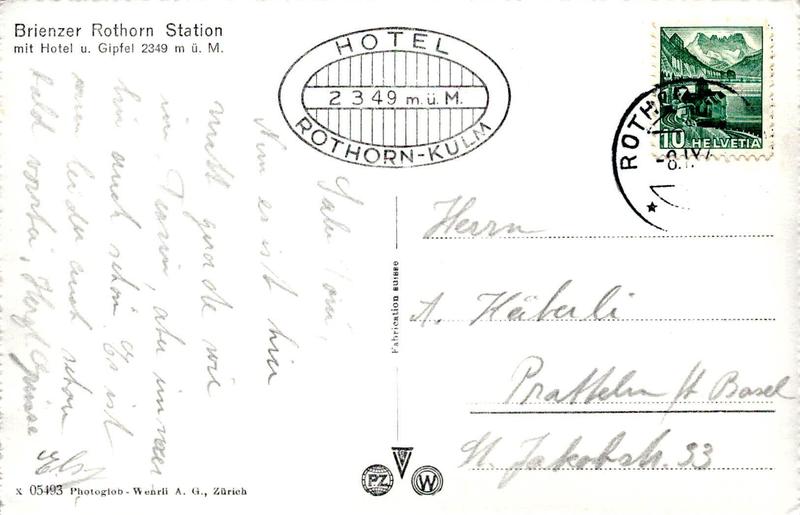 Brienzer Rothorn Station
mit Hotel u. Gipfel 2349 m ü. M.
HOTEL
2349 m. ü. M.
ROTHORN-KULM
ROTHO
-8.IV.
10 HELVETIA
Salü Toni,
Nun es ist hier
nicht gerade wie
im Tessin, aber immer
hin auch schön. Es ist
leider auch schon
bald vorbei, Herzl. Grüsse
Fabrication suisse
Herrn
A. Häberli
Pratteln /t Basel
St. Jakobstr. 33
PZ
W
X 05493 Photoglob-Wehrli A. G., Zürich